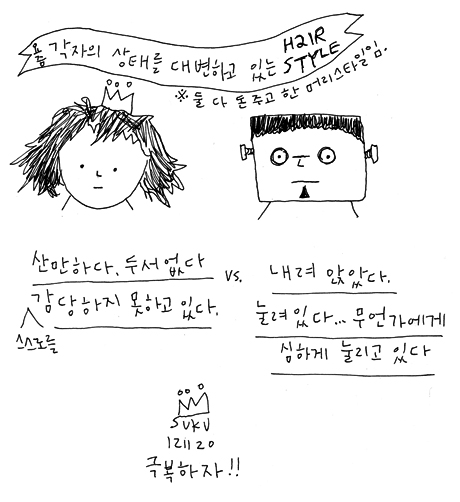 요즘 각자의 상태를 대변하고 있는 HAIR STYLE
※ 둘 다 돈 주고 한 머리스타일임.
산만하다. 두서없다
감당하지 못하고 있다.
스스로를
vs.
내려 앉았다.
눌려있다... 무언가에게
심하게 눌리고 있다
SUKU
121120
극복하자!!